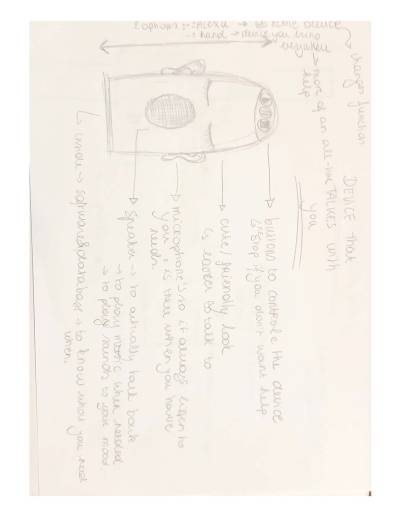 DEVICE that
TALKES with
you
2 options: :: alexa → as home device
:: hand → device you bring
everywhere
→ changes function
→ more of an all-time
help
→ buttons to controle the device
↳ stop if you don't want help
→ cute / friendly look
↳ easier to talk to
→ microphones so it always listen to
you & is there when you have
needs
→ Speaker → to actually talk back
→ to play music when needed
→ to play sounds to your mood
↳ inside → software & database → to know what you need
when.